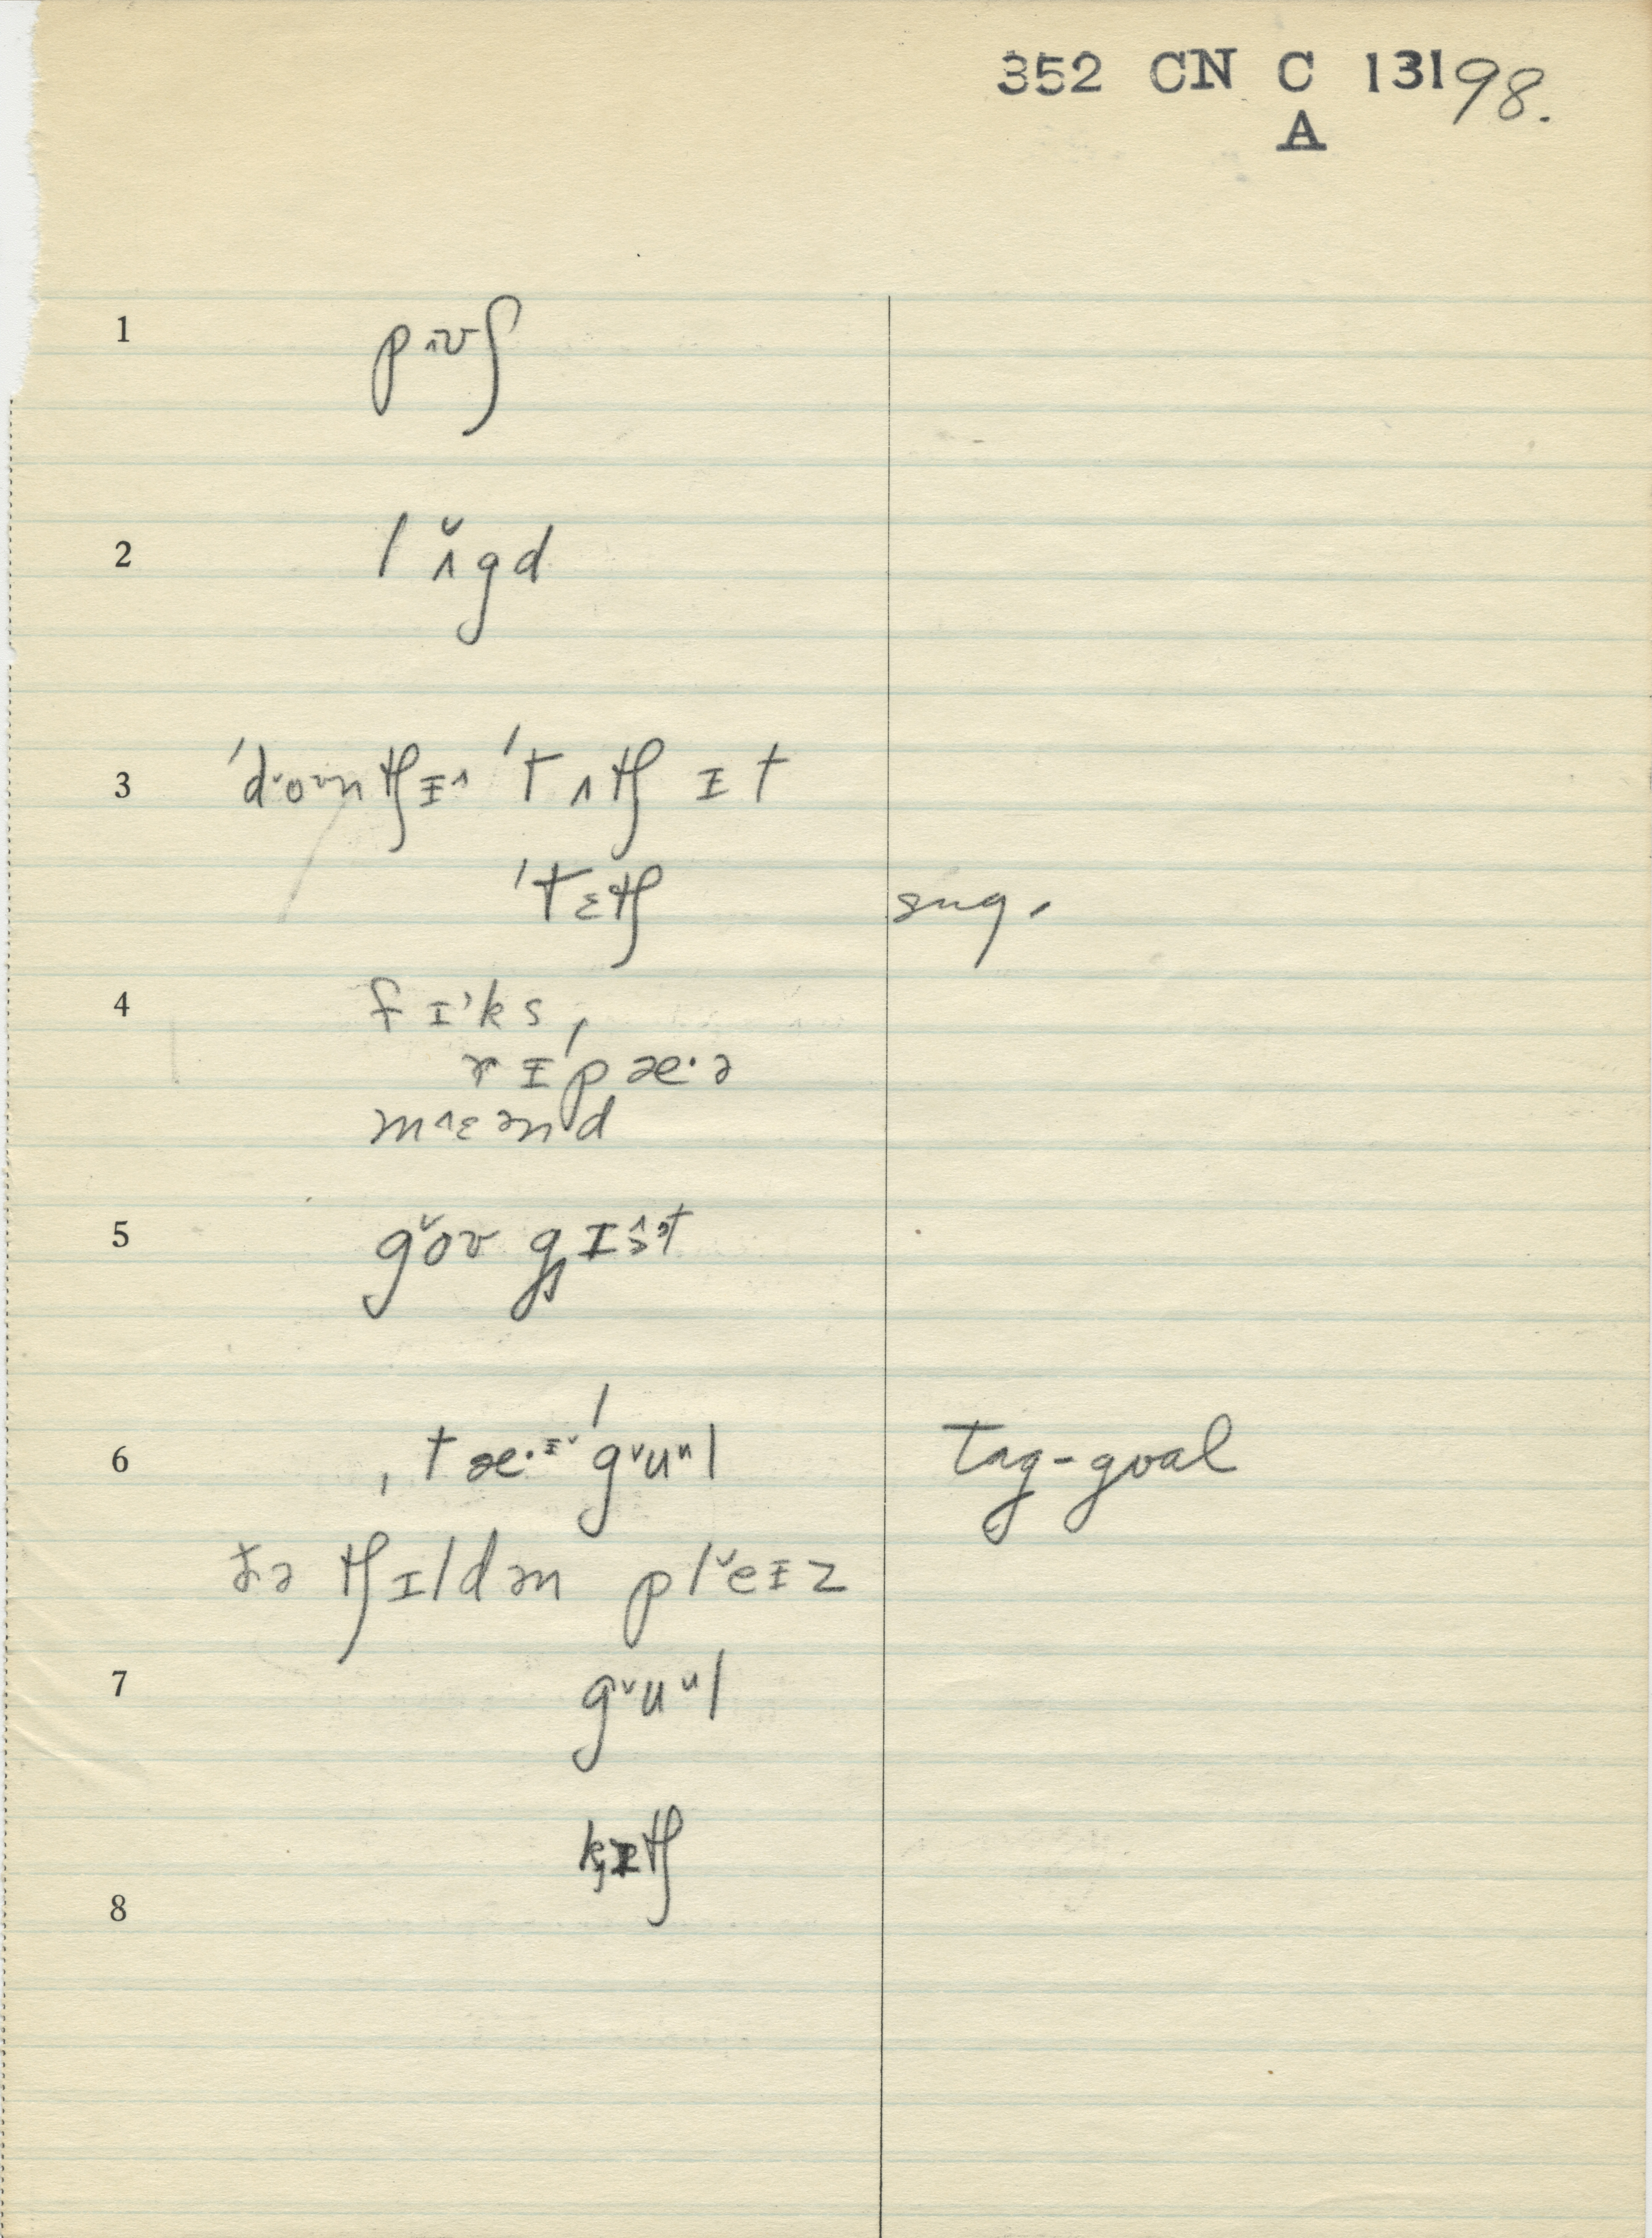 352 CN C 131 98.
A
1 pʊ^ʃ
2 lʌ̌gd
3 ˈdoʊntʃɪ^ ˈtʌtʃ ɪt
ˈtɛtʃ sug.
4 fɪ'ks,
rɪˈpæ·ə
m^ɛənd
5 gǒʊ gɪst
6 ˌtæ·ɪˈgᵛuᵘl tag-goal
ðə tʃɪldən plˇeɪz
7 gᵛuᵘl
kɪtʃ
8